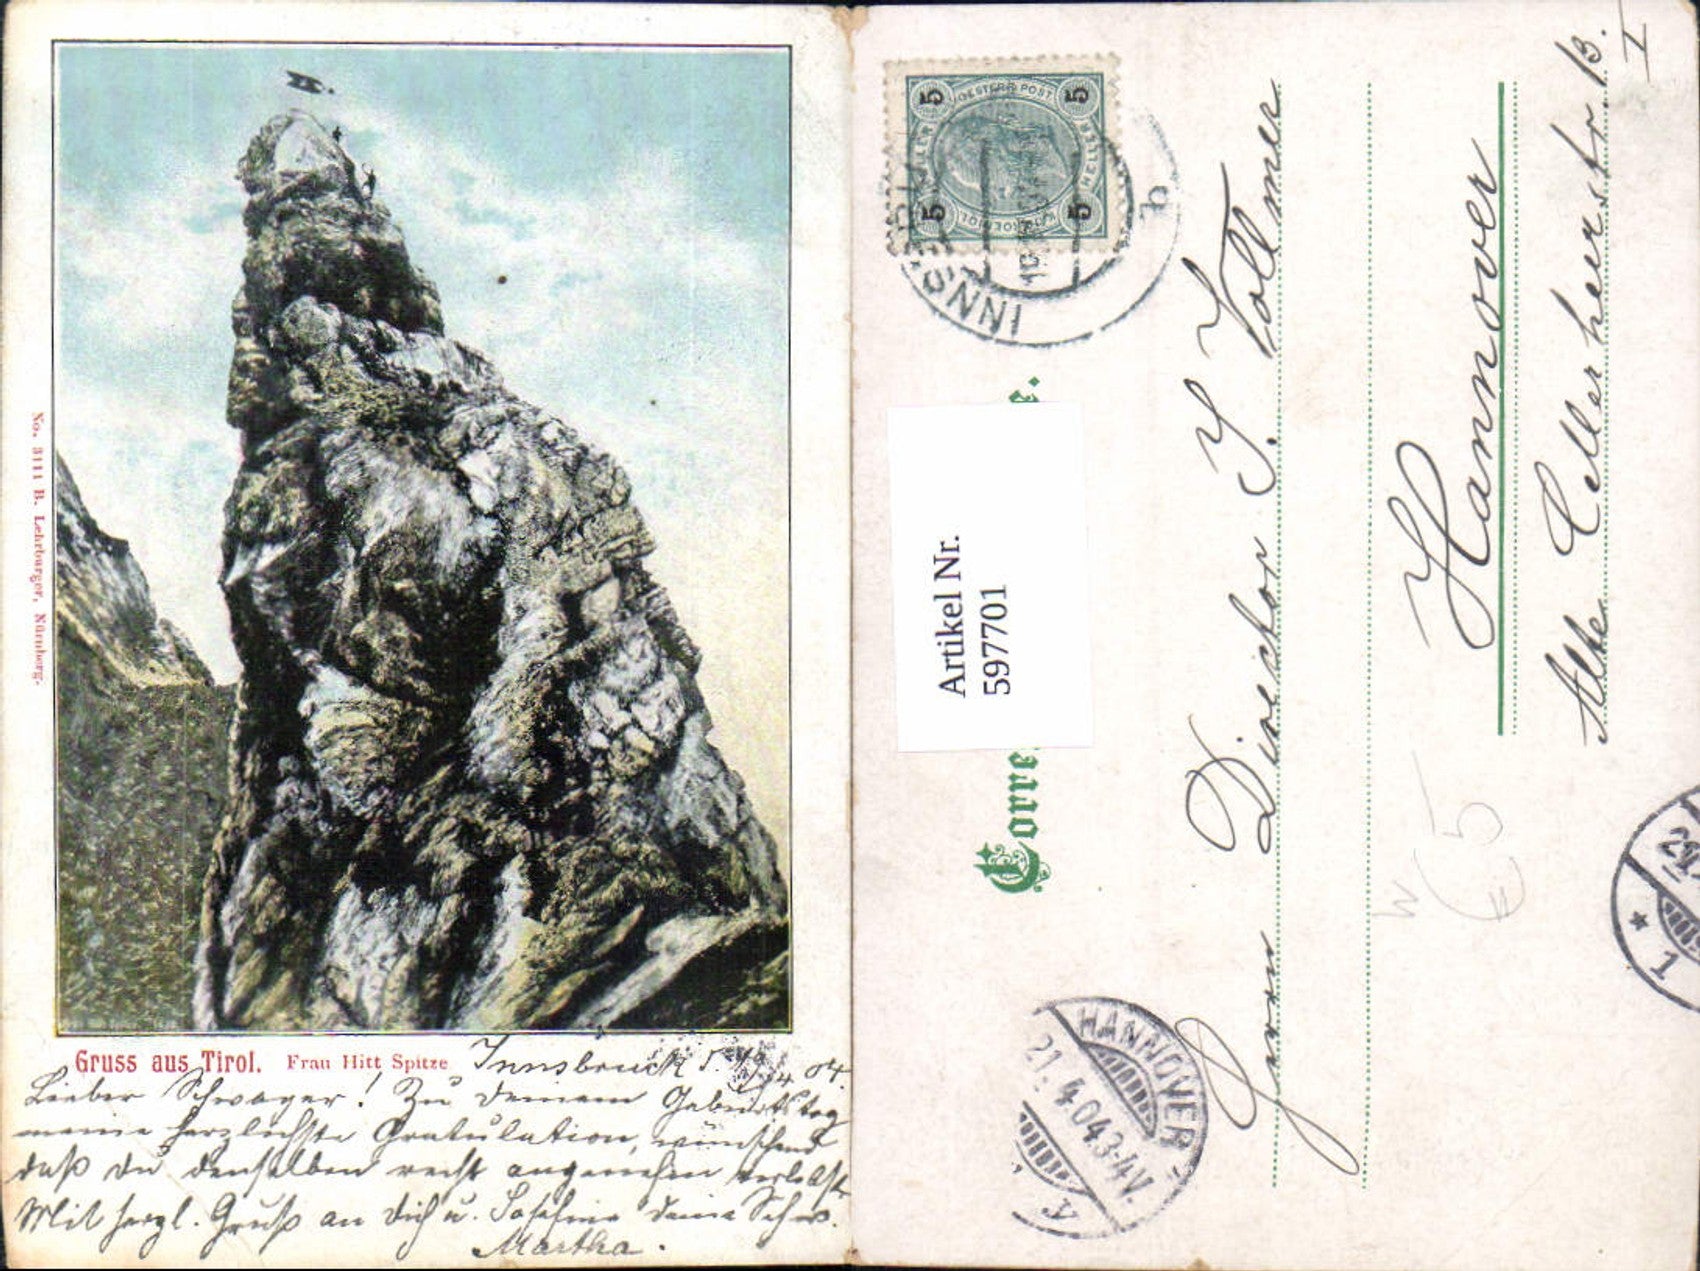 No. 3111 B. Lehrburger, Nürnberg.
Gruss aus Tirol. Frau Hitt Spitze
Innsbruck 04.
Lieber Schwager! Zu Deinem Geburtstag
meine herzlichste Gratulation, wünschend
daß Du denselben recht angenehm verlebst
Mit herzl. Gruß an Dich u. Josefine Deine Schw.
Martha.
5 5
OESTERR. POST
HELLER HELLER
5 5
INNSBRUCK
b
Corre
Artikel Nr.
597701
Herrn Direktor J. Vollmer
Hannover
Alte Cellerheerstr. 13.
I
W
€5
HANNOVER
21.4.04.3-4V.
1